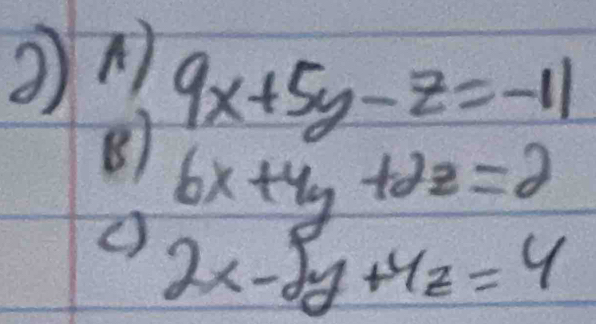 2) A) 9x+5y-z=-11
B) 6x+4y+2z=2
C) 2x-2y+4z=4